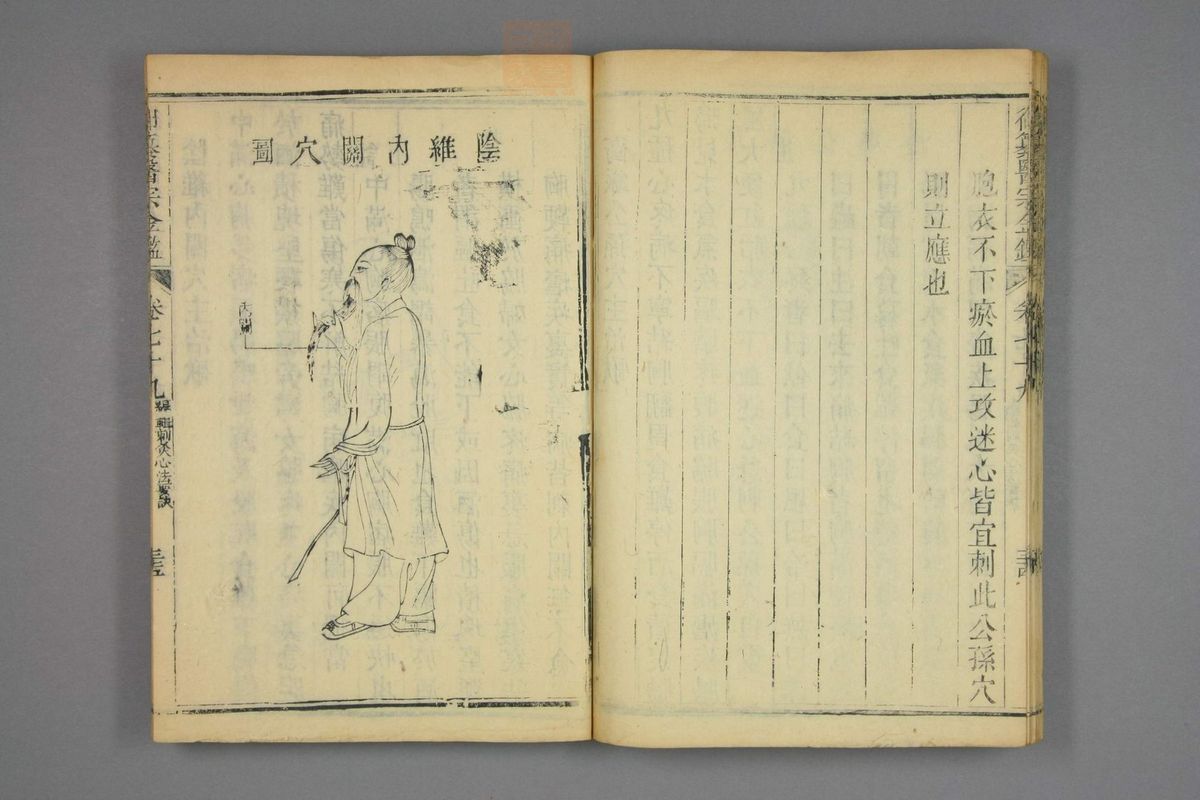 胞衣不下瘀血上攻迷心皆宜刺此公孫穴
則立應也
御纂醫宗金鑑
卷七十九
陰維內關穴圖
內關
御纂醫宗金鑑
卷七十九
刺灸心法要訣